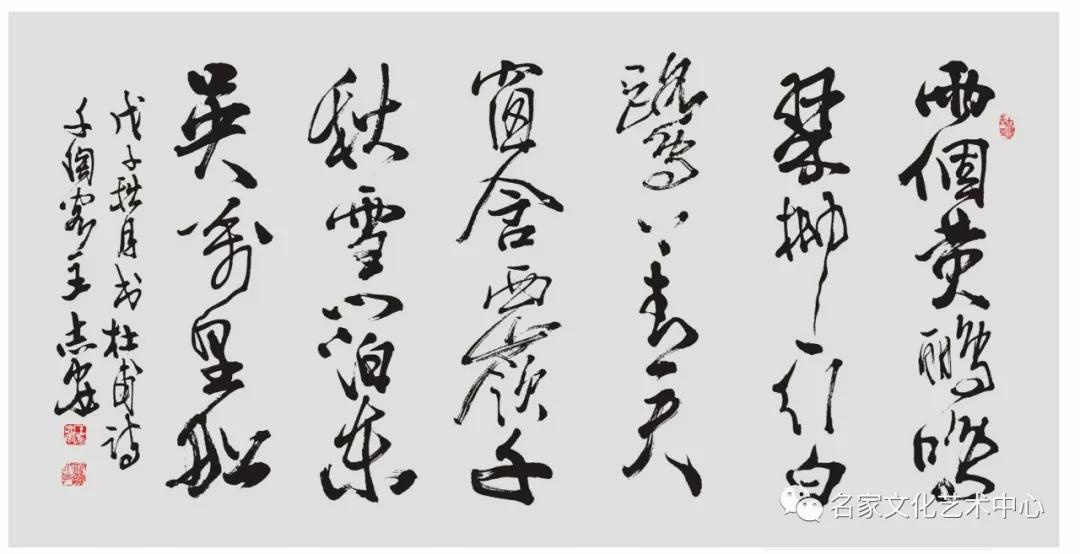 兩個黄鸝鳴
翠柳一行白
鷺上青天
窗含西嶺千
秋雪門泊東
吴萬里船
戊子秋月书杜甫诗
于陶 王志安
名家文化艺术中心